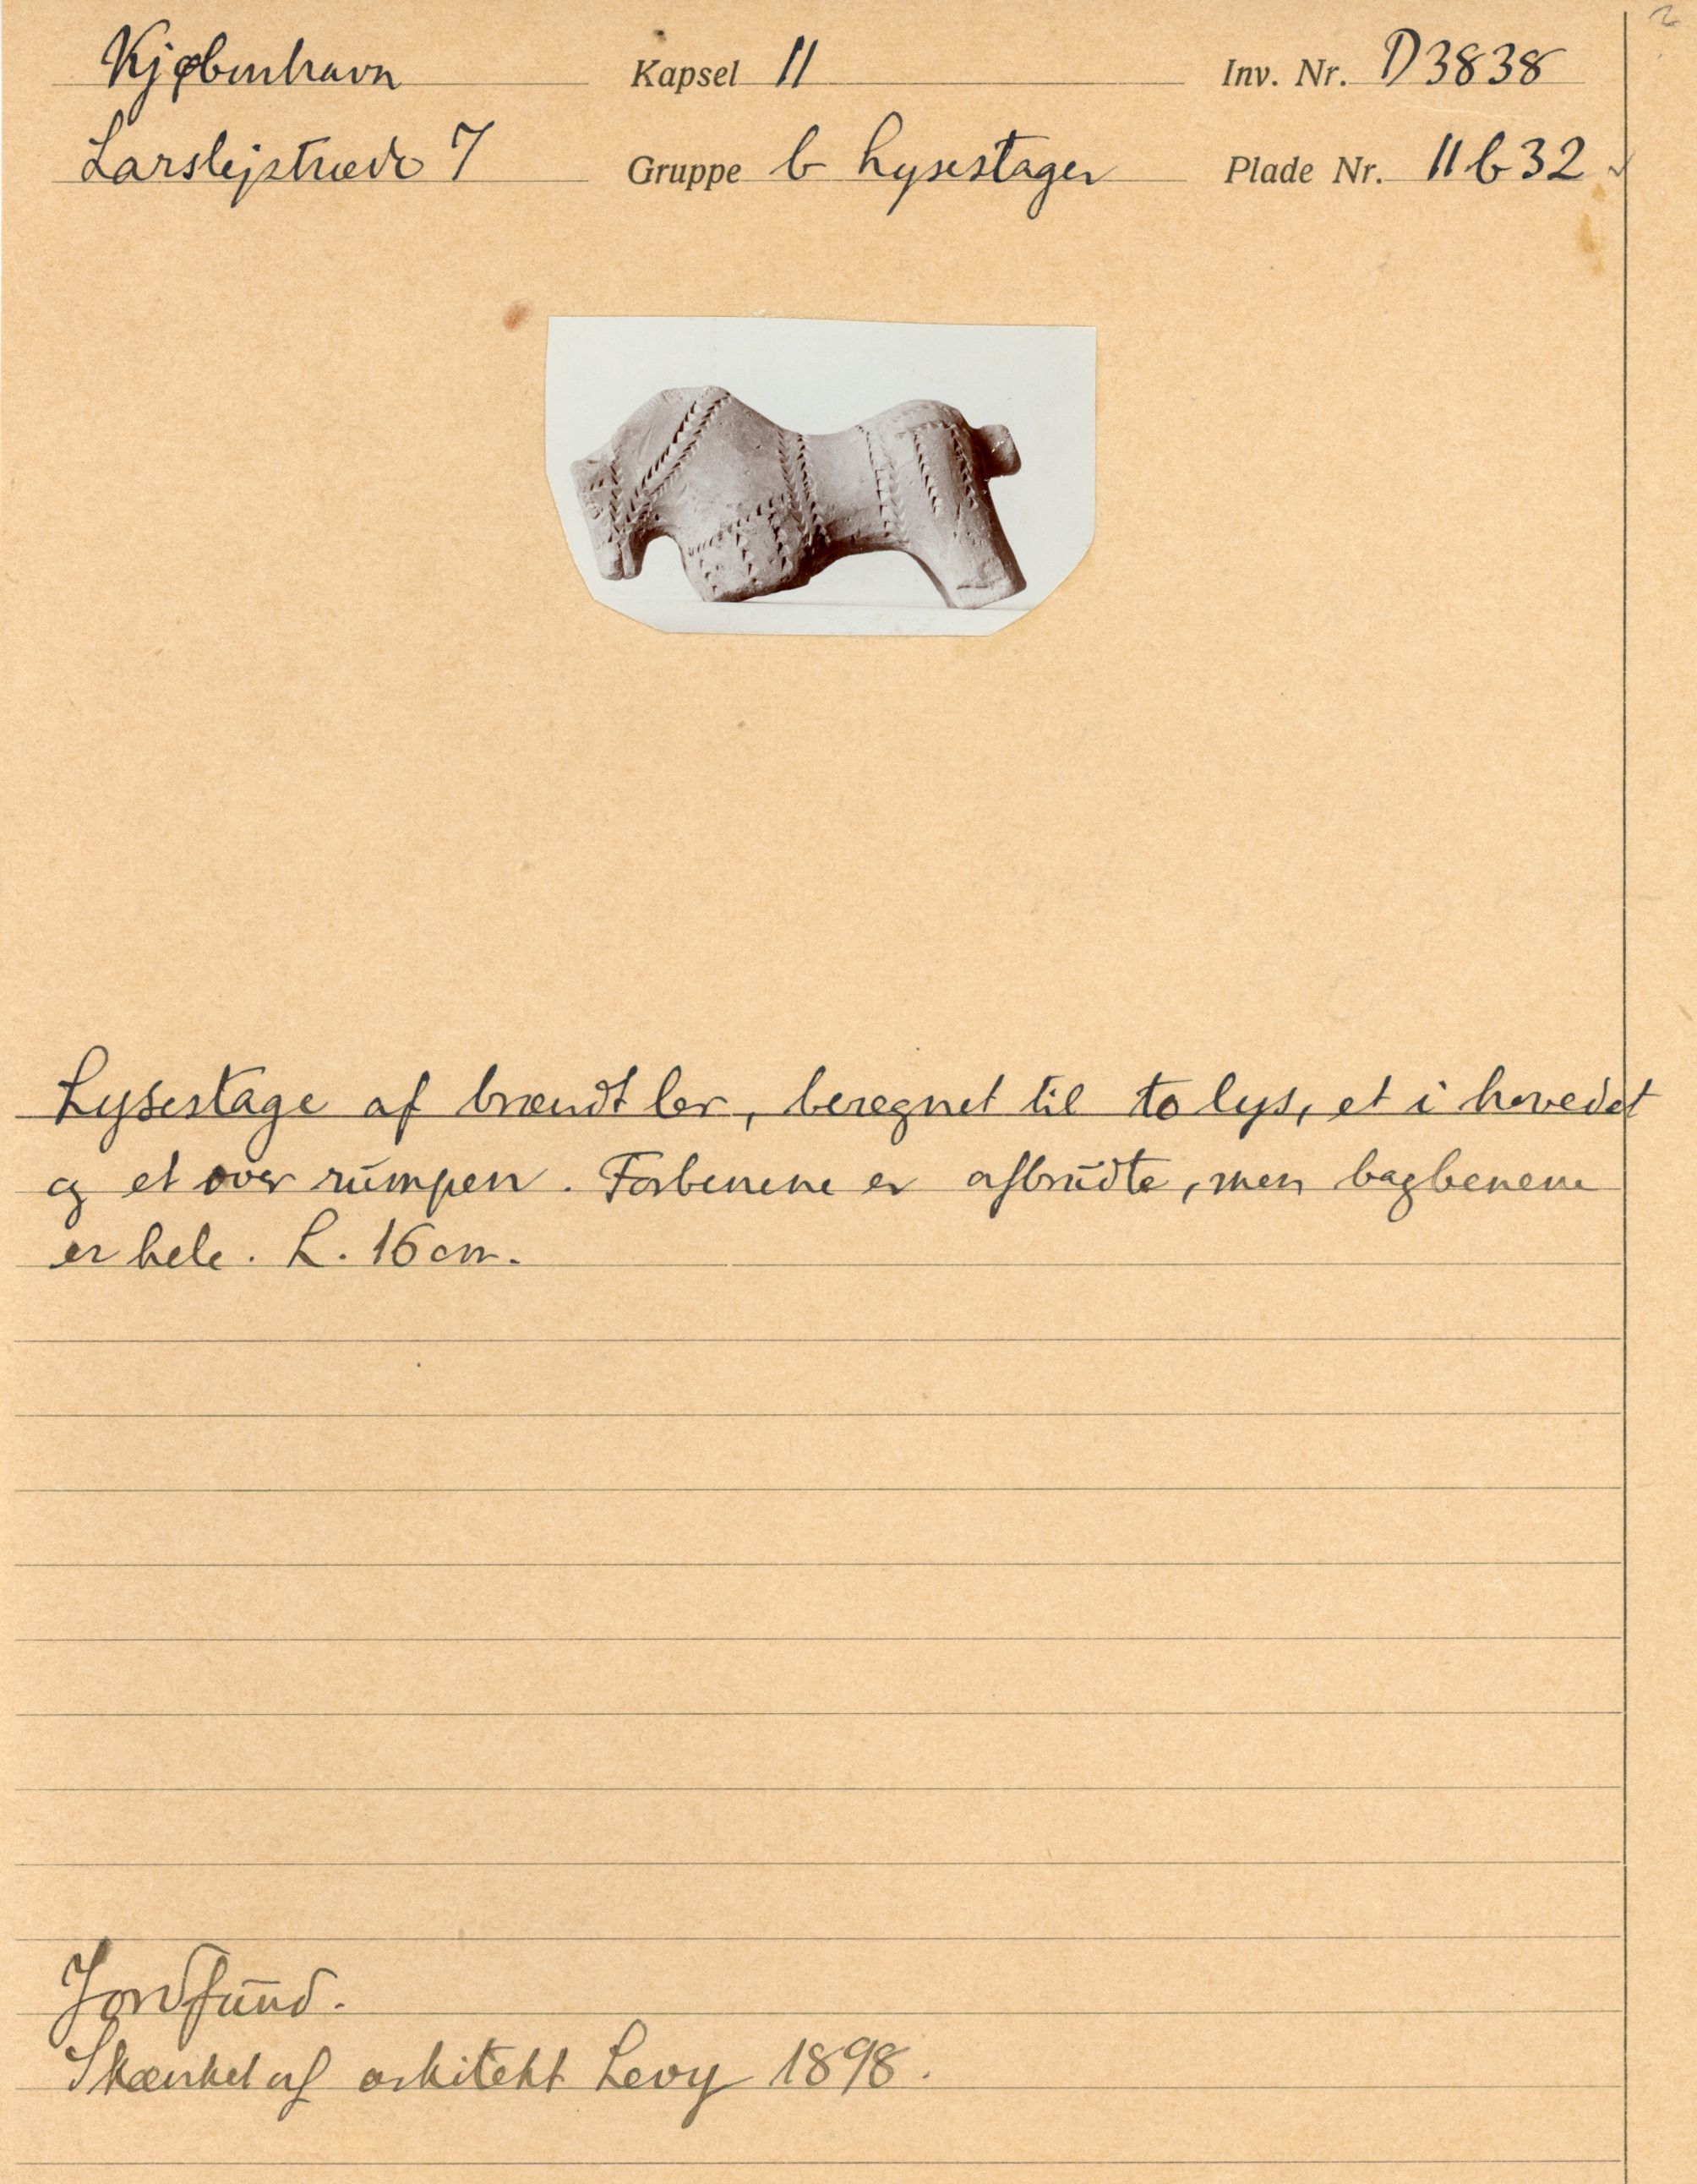 Kjøbenhavn Kapsel 11 Inv. Nr. D3838
Larslejstræde 7 Gruppe b Lysestager Plade Nr. 11b32
Lysestage af brændt ler, beregnet til to lys, et i hovedet
og et over rumpen. Forbenene er afbrudte, men bagbenene
er hele. L. 16 cm.
Jordfund.
Skænket af arkitekt Levy 1898.